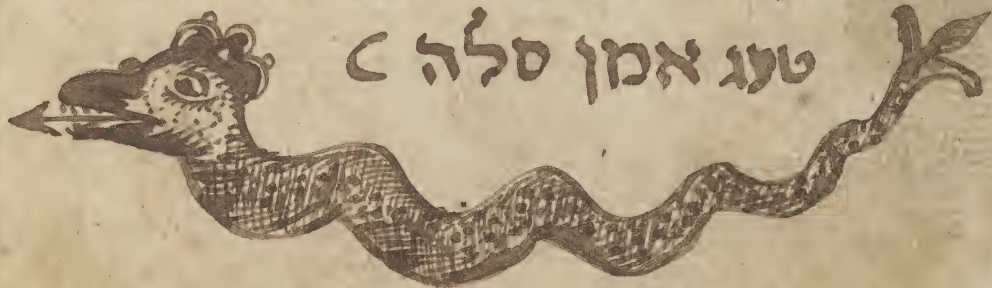 טעג אמן סלה